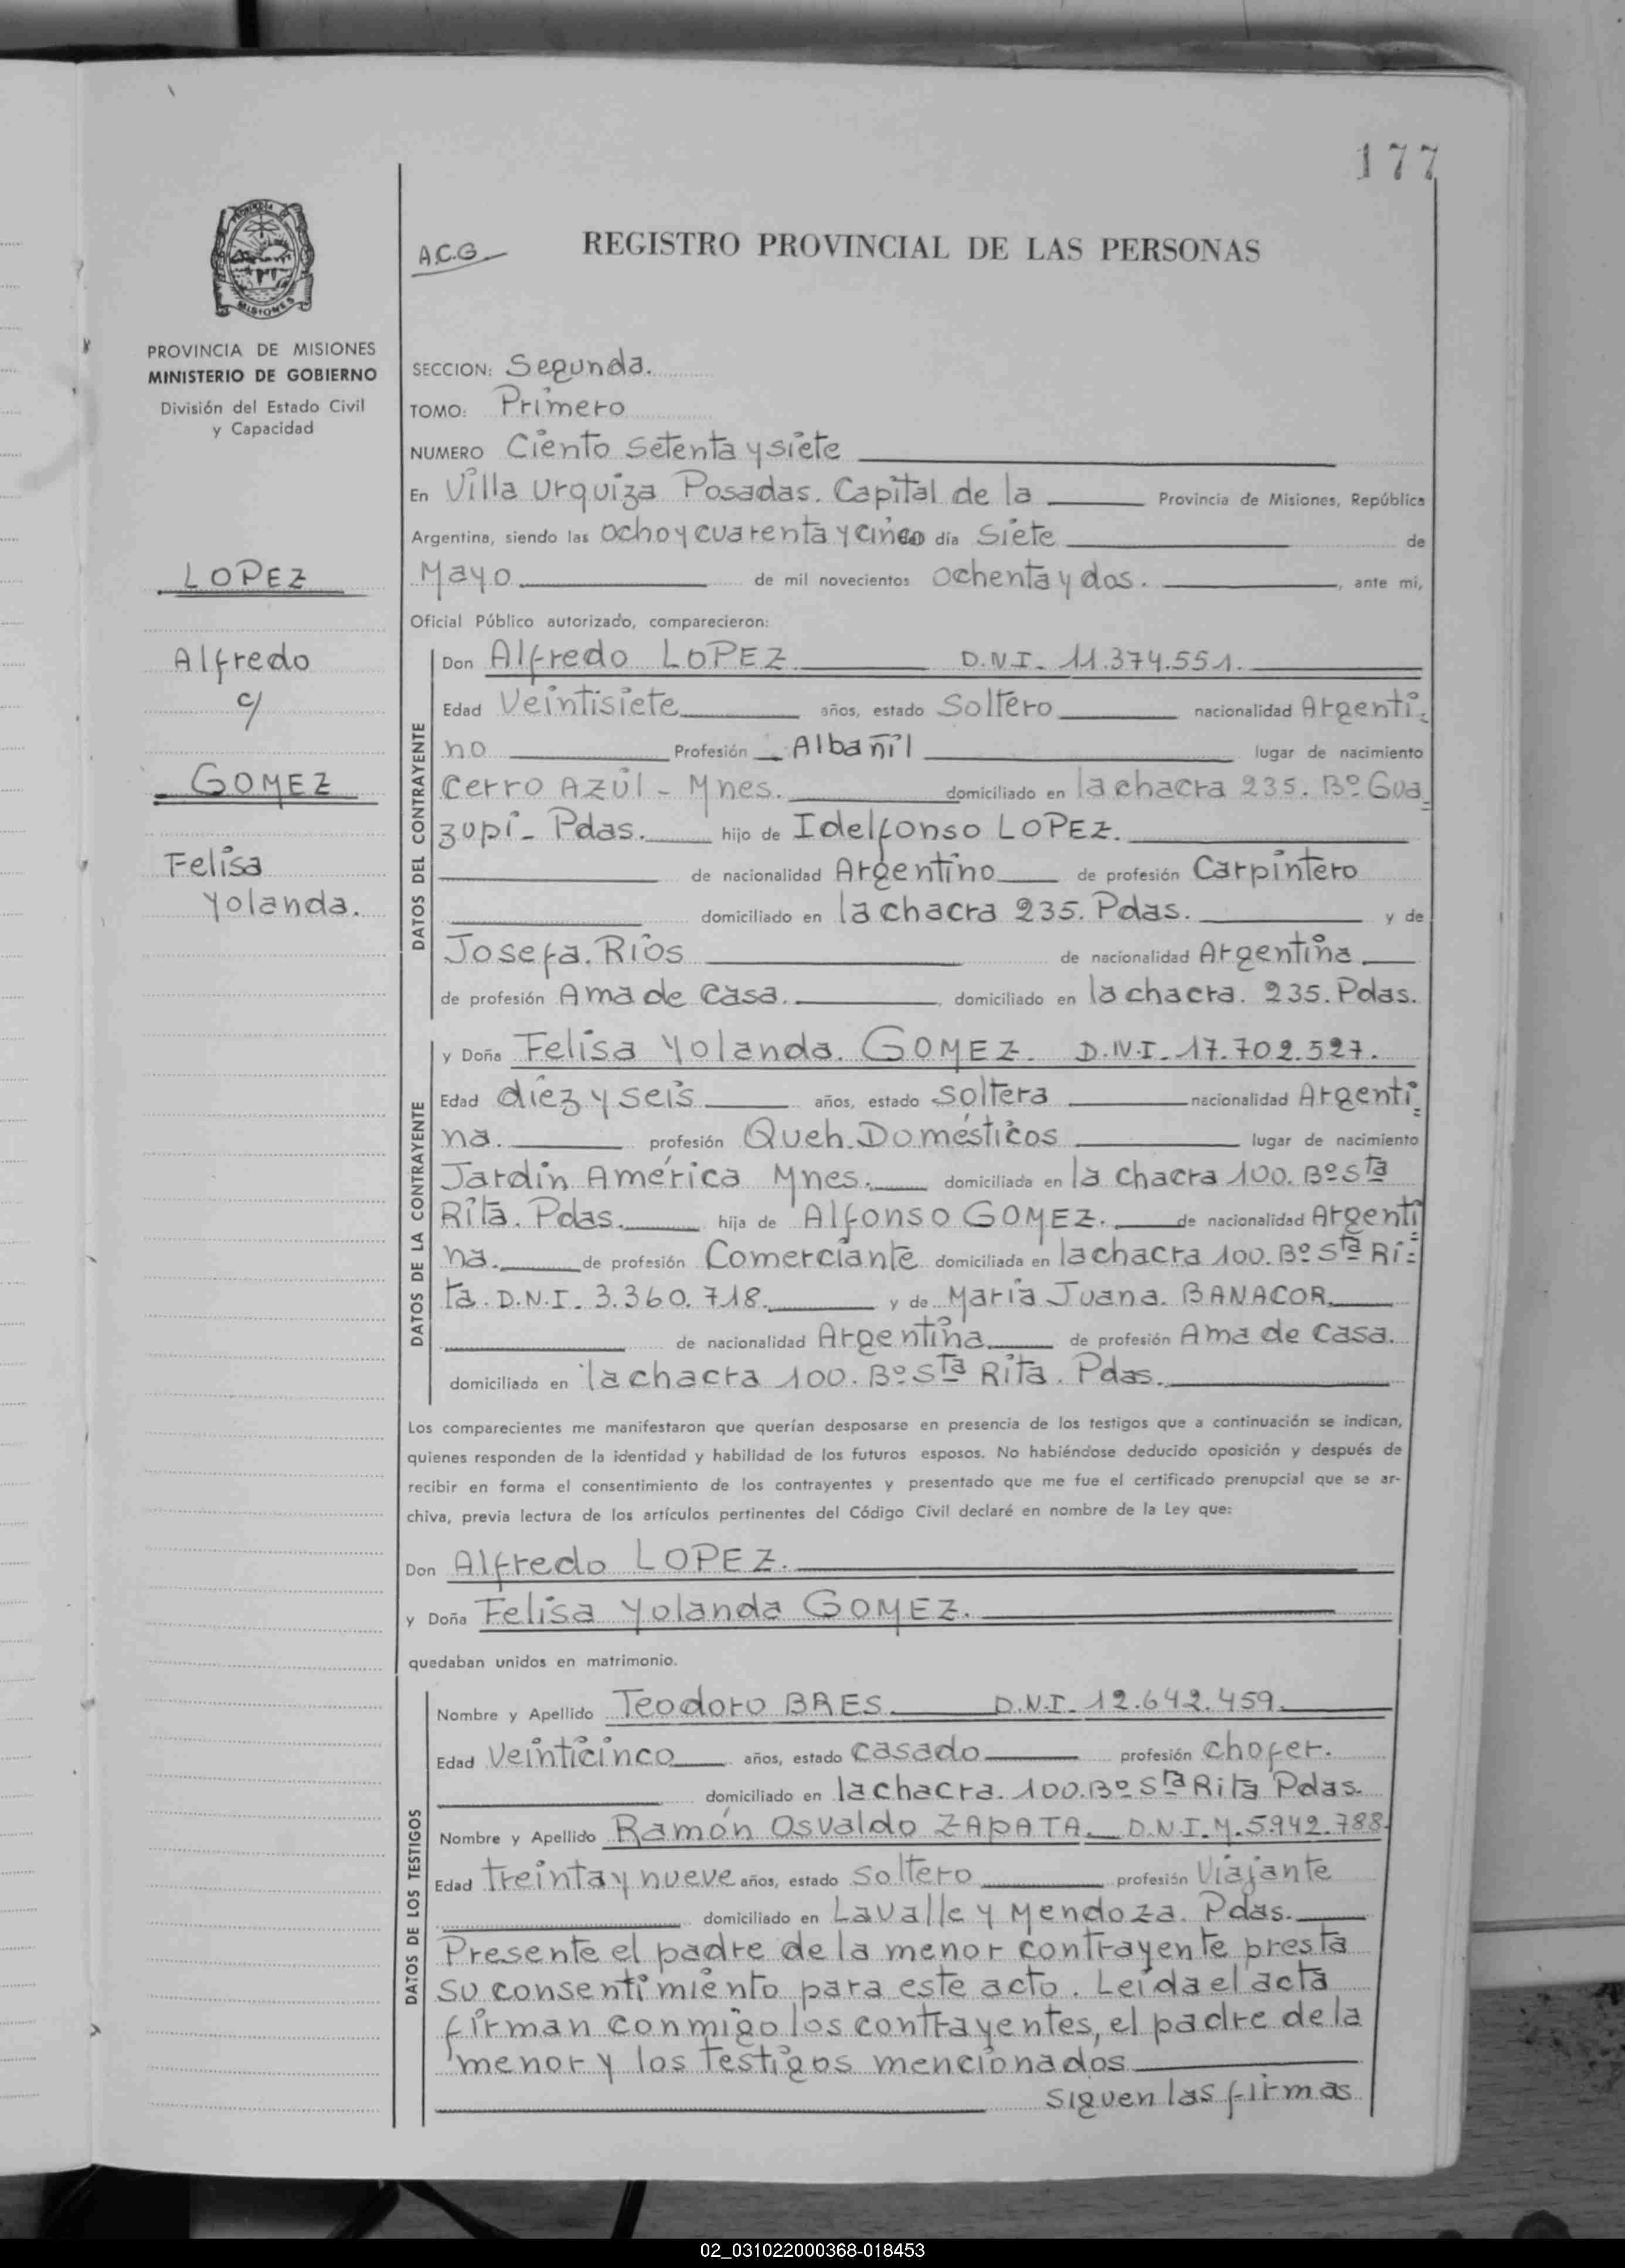 177
A.C.G
REGISTRO PROVINCIAL DE LAS PERSONAS
PROVINCIA DE MISIONES
MINISTERIO DE GOBIERNO
División del Estado Civil
y Capacidad
LOPEZ
Alfredo
c/
GOMEZ
Felisa
Yolanda.
SECCION: Segunda.
TOMO: Primero
NUMERO Ciento setenta y siete
En Villa Urquiza Posadas. Capital de la Provincia de Misiones, República
Argentina, siendo las ocho y cuarenta y cinco día siete de
Mayo de mil novecientos ochenta y dos. , ante mí,
Oficial Público autorizado, comparecieron:
DATOS DEL CONTRAYENTE
Don Alfredo LOPEZ D.N.I. 11.374.551.
Edad Veintisiete años, estado Soltero nacionalidad Argenti-
no Profesión Albañil lugar de nacimiento
Cerro Azúl - Mnes. domiciliado en la chacra 235. Bº Gua_
zupi- Pdas. hijo de Idelfonso LOPEZ.
de nacionalidad Argentino de profesión Carpintero
domiciliado en la chacra 235. Pdas. y de
Josefa. Rios de nacionalidad Argentina
de profesión Ama de Casa. , domiciliado en la chacra. 235. Pdas.
DATOS DE LA CONTRAYENTE
y Doña Felisa Yolanda. GOMEZ. D.N.I. 17.702.527.
Edad diez y seis años, estado soltera nacionalidad Argenti=
na. profesión Queh. Domésticos lugar de nacimiento
Jardin América Mnes. domiciliada en la chacra 100. Bº Sta
Rita. Pdas. hija de Alfonso GOMEZ. de nacionalidad Argenti=
na. de profesión Comerciante domiciliada en la chacra 100. Bº Sta Ri=
ta. D.N.I. 3.360.718. y de Maria Juana. BANACOR.
de nacionalidad Argentina de profesión Ama de Casa.
domiciliada en la chacra 100. Bº Sta Rita. Pdas.
Los comparecientes me manifestaron que querían desposarse en presencia de los testigos que a continuación se indican,
quienes responden de la identidad y habilidad de los futuros esposos. No habiéndose deducido oposición y después de
recibir en forma el consentimiento de los contrayentes y presentado que me fue el certificado prenupcial que se ar-
chiva, previa lectura de los artículos pertinentes del Código Civil declaré en nombre de la Ley que:
Don Alfredo LOPEZ.
y Doña Felisa Yolanda GOMEZ.
quedaban unidos en matrimonio.
DATOS DE LOS TESTIGOS
Nombre y Apellido Teodoro BRES. D.N.I. 12.642.459.
Edad Veinticinco años, estado casado profesión chofer.
domiciliado en la chacra. 100. Bº Sta Rita Pdas.
Nombre y Apellido Ramón Osvaldo ZAPATA. D.N.I. M. 5.942.788.
Edad treinta y nueve años, estado soltero profesión Viajante
domiciliado en Lavalle y Mendoza. Pdas.
Presente el padre de la menor contrayente presta
su consentimiento para este acto. Leida el acta
firman conmigo los contrayentes, el padre de la
menor y los testigos mencionados
siguen las firmas
02_031022000368-018453